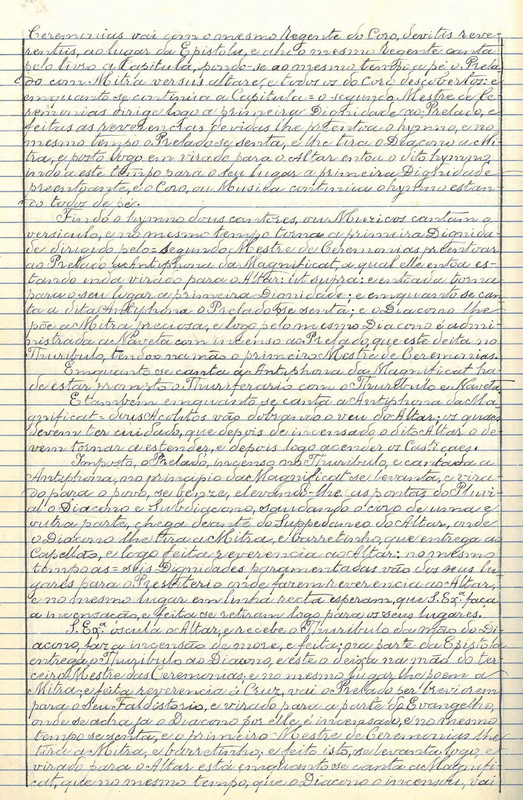 Ceremonias vai com o mesmo Regente do Coro, devitis reve-
rentiis, ao lugar da Epistola, e ahi o mesmo Regente canta
pelo livro a Capitula, pondo-se ao mesmo tempo a pé o Prela-
do com Mitra versus altare, e todos os do Coro descobertos: e
emquanto se continúa a Capitula = o segundo Mestre de Ce-
remonias dirige logo a primeira Dignidade ao Prelado, e
feitas as reverencias devidas lhe prentôa o hymno, e no
mesmo tempo o Prelado se senta, e lhe tira o Diacono a Mi-
tra, e posto logo em virado para o Altar entôa o dito hymno,
indo a este tempo para o seu lugar a primeira Dignidade
preentoante, e o Coro, ou Musica continúa o hymno estan-
do todos de pé.
Findo o hymno dous cantores, ou Muzicos cantam o
versiculo, e no mesmo tempo torna a primeira Dignida-
de dirigido pelo = segundo Mestre de Ceremonias prentoar
ao Prelado a Antiphona da Magnificat, a qual elle entôa es-
tando inda virado para o Altar: ut supra: e entoada torna
para o seu lugar a primeira Dignidade: e emquanto se can-
ta a dita Antiphona o Prelado se senta; e o Diacono lhe
põe a Mitra preciosa, e logo pelo mesmo Diacono é admi-
nistrada a Naveta com incenso ao Prelado, que este deita no
Thuribulo, tendo-o na mão o primeiro Mestre de Ceremonias.
Emquanto se canta a Antiphona da Magnificat ha-
de estar prompto o Thuriferario com o Thuribulo e Naveta
E também emquanto se canta a Antiphona da Ma-
gnificat = dous Acolutos vão dobrando o veu do Altar; os quaes
devem ter cuidado, que depois de incensado o dito Altar o de-
vem tornar a estender, e depois logo acender os Castiçaes.
Imposto, o Prelado, incenso no Thuribulo, e cantada a
Antiphona, no principio da Magnificat se levanta, e vira-
do para o povo, se benze, elevando-lhe as pontas do Pluvi-
al o Diacono e Subdiacono, saudando o coro de uma e
outra parte, chega deante do Suppedaneo do Altar, onde
o Diacono lhe tira a Mitra, e barretinho, que entrega ao
Capellão, e logo feita reverencia ao Altar: no mesmo
tempo as = seis Dignidades paramentadas vão dos seus lu-
gares para o Presbiterio onde fazem reverencia ao Altar,
e no mesmo lugar em linha recta esperam, que S. Exª faça
a incensação, e feita se retiram logo para os seus lugares.
S. Exª oscula o Altar, e recebe o Thuribulo da mão do Di-
acono, faz a incensão de more, e feita; na parte da Epistola
entrega o Thuribulo ao Diacono, e este o deixa na mão do ter-
ceiro Mestre das Ceremonias, e no mesmo lugar lhe põem a
Mitra: e feita reverencia á Cruz, vai o Prelado per breviorem
para o seu Faldistorio, e virado para a parte do Evangelho,
onde se acha ja o Diacono por elle, é incensado, e no mesmo
tempo se senta, e o primeiro Mestre de Ceremonias lhe
tira a Mitra, e barretinho, e feito isto, se levanta logo, e
virado para o Altar está emquanto se canta a Magnifi-
cat, que no mesmo tempo, que o Diacono o incensou, vai